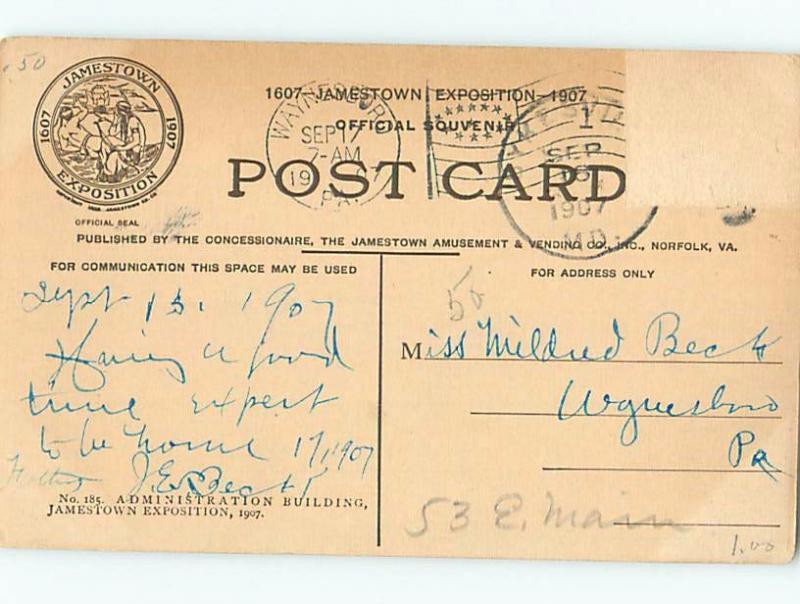 .50
JAMESTOWN
1607
1907
EXPOSITION
OFFICIAL SEAL
1607—JAMESTOWN EXPOSITION—1907
OFFICIAL SOUVENIR
POST CARD
WAYNESBORO
SEP 17
7-AM
19 7
PA.
1
SEP
1907
MD.
PUBLISHED BY THE CONCESSIONAIRE, THE JAMESTOWN AMUSEMENT & VENDING CO., INC., NORFOLK, VA.
FOR COMMUNICATION THIS SPACE MAY BE USED
FOR ADDRESS ONLY
50
Sept 15. 1907
Having a good
time expect
to be home 17, 1907
Father J.E. Beck
Miss Mildred Beck
Waynesboro
Pa
53 E. Main
No. 185. ADMINISTRATION BUILDING,
JAMESTOWN EXPOSITION, 1907.
1.00